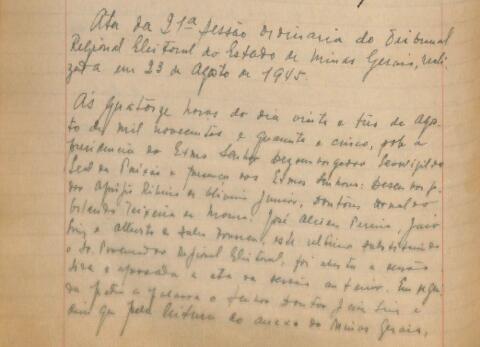 Ata da 21ª sessão ordinaria do Tribunal
Regional Eleitoral do Estado de Minas Gerais, reali-
zada em 23 de Agosto de 1945.
Ás quatorze horas do dia vinte e três de Agos-
to de mil novecentos e quarenta e cinco, sob a
presidencia do Exmo Senhor Desembargador Leovigildo
Leal da Paixão e presença dos Exmos Senhores: Desembarga-
dor Aprigio Ribeiro de Oliveira Junior, Doutores Arnaldo
Teixeira de Moura, José Alcides Pereira, Jair
Lins e Alberto, este ultimo substituindo
o Dr. Procurador Regional Eleitoral, foi aberta a sessão
lida e aprovada a ata da sessão anterior. Em segui-
da pediu a palavra o Senhor Doutor Jair Lins e
pela leitura do anexo do Minas Gerais,